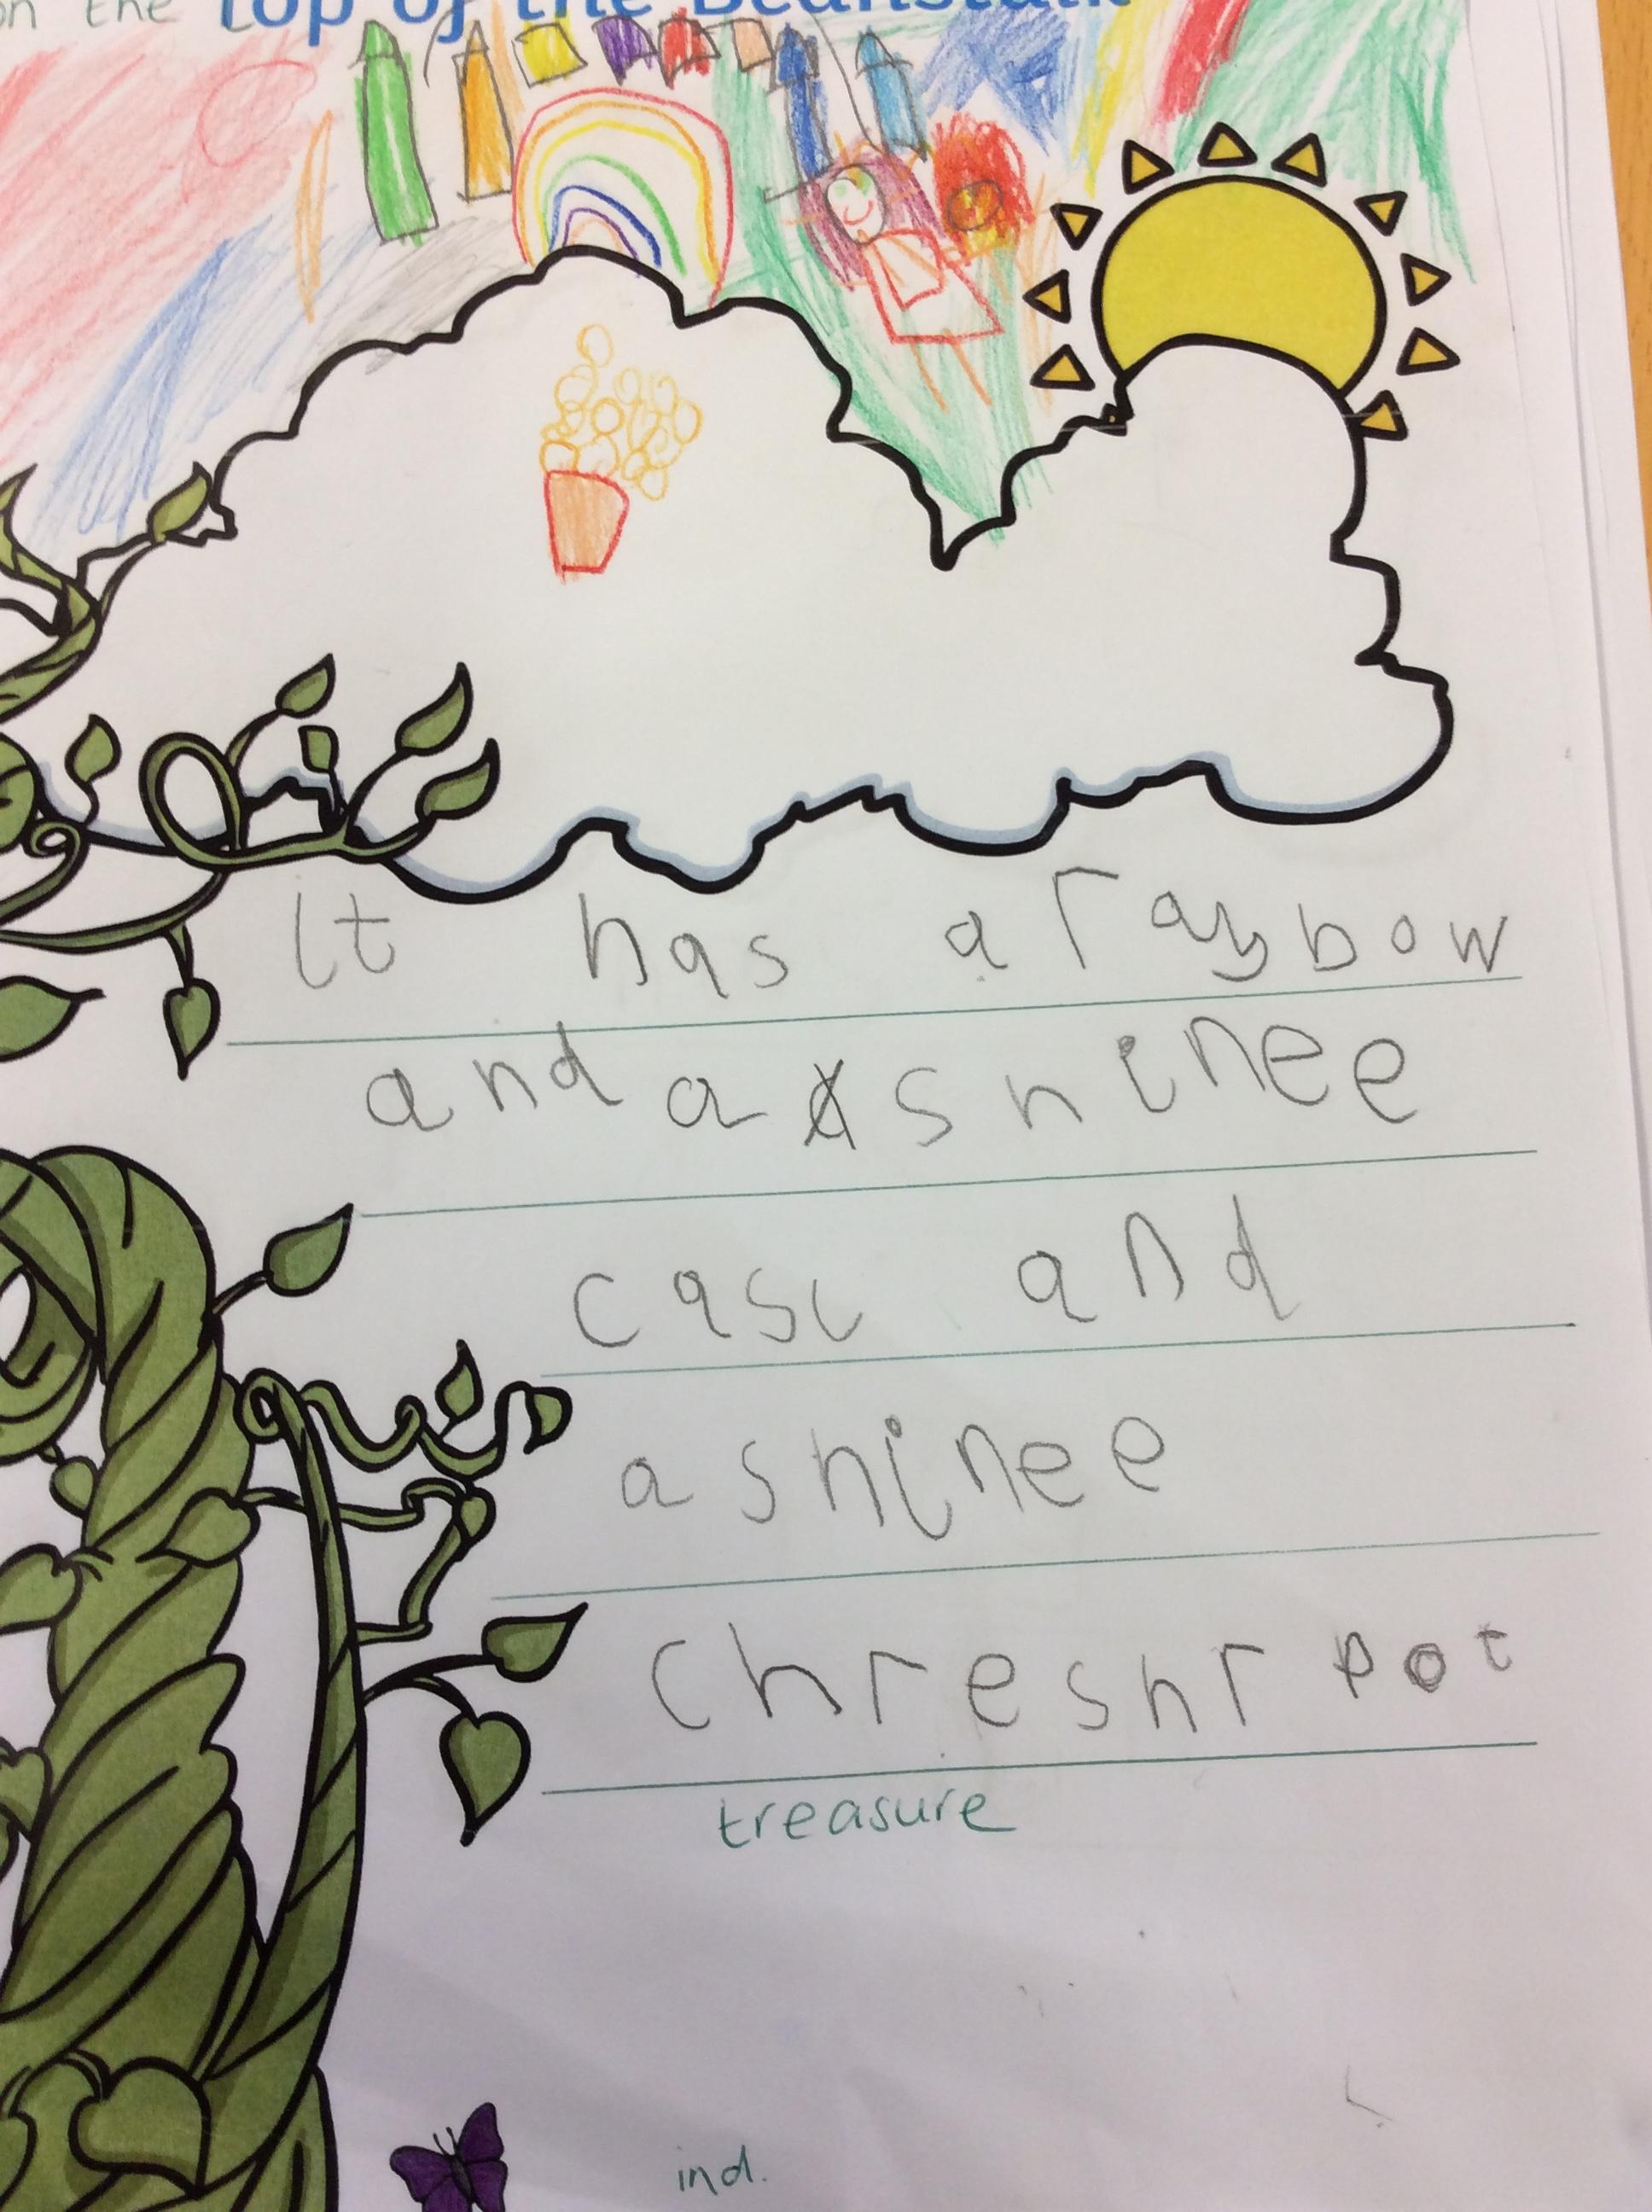 on the Top of the Beanstalk
It has a raybow
and a shinee
casl and
a shinee
chreshr pot
treasure
ind.